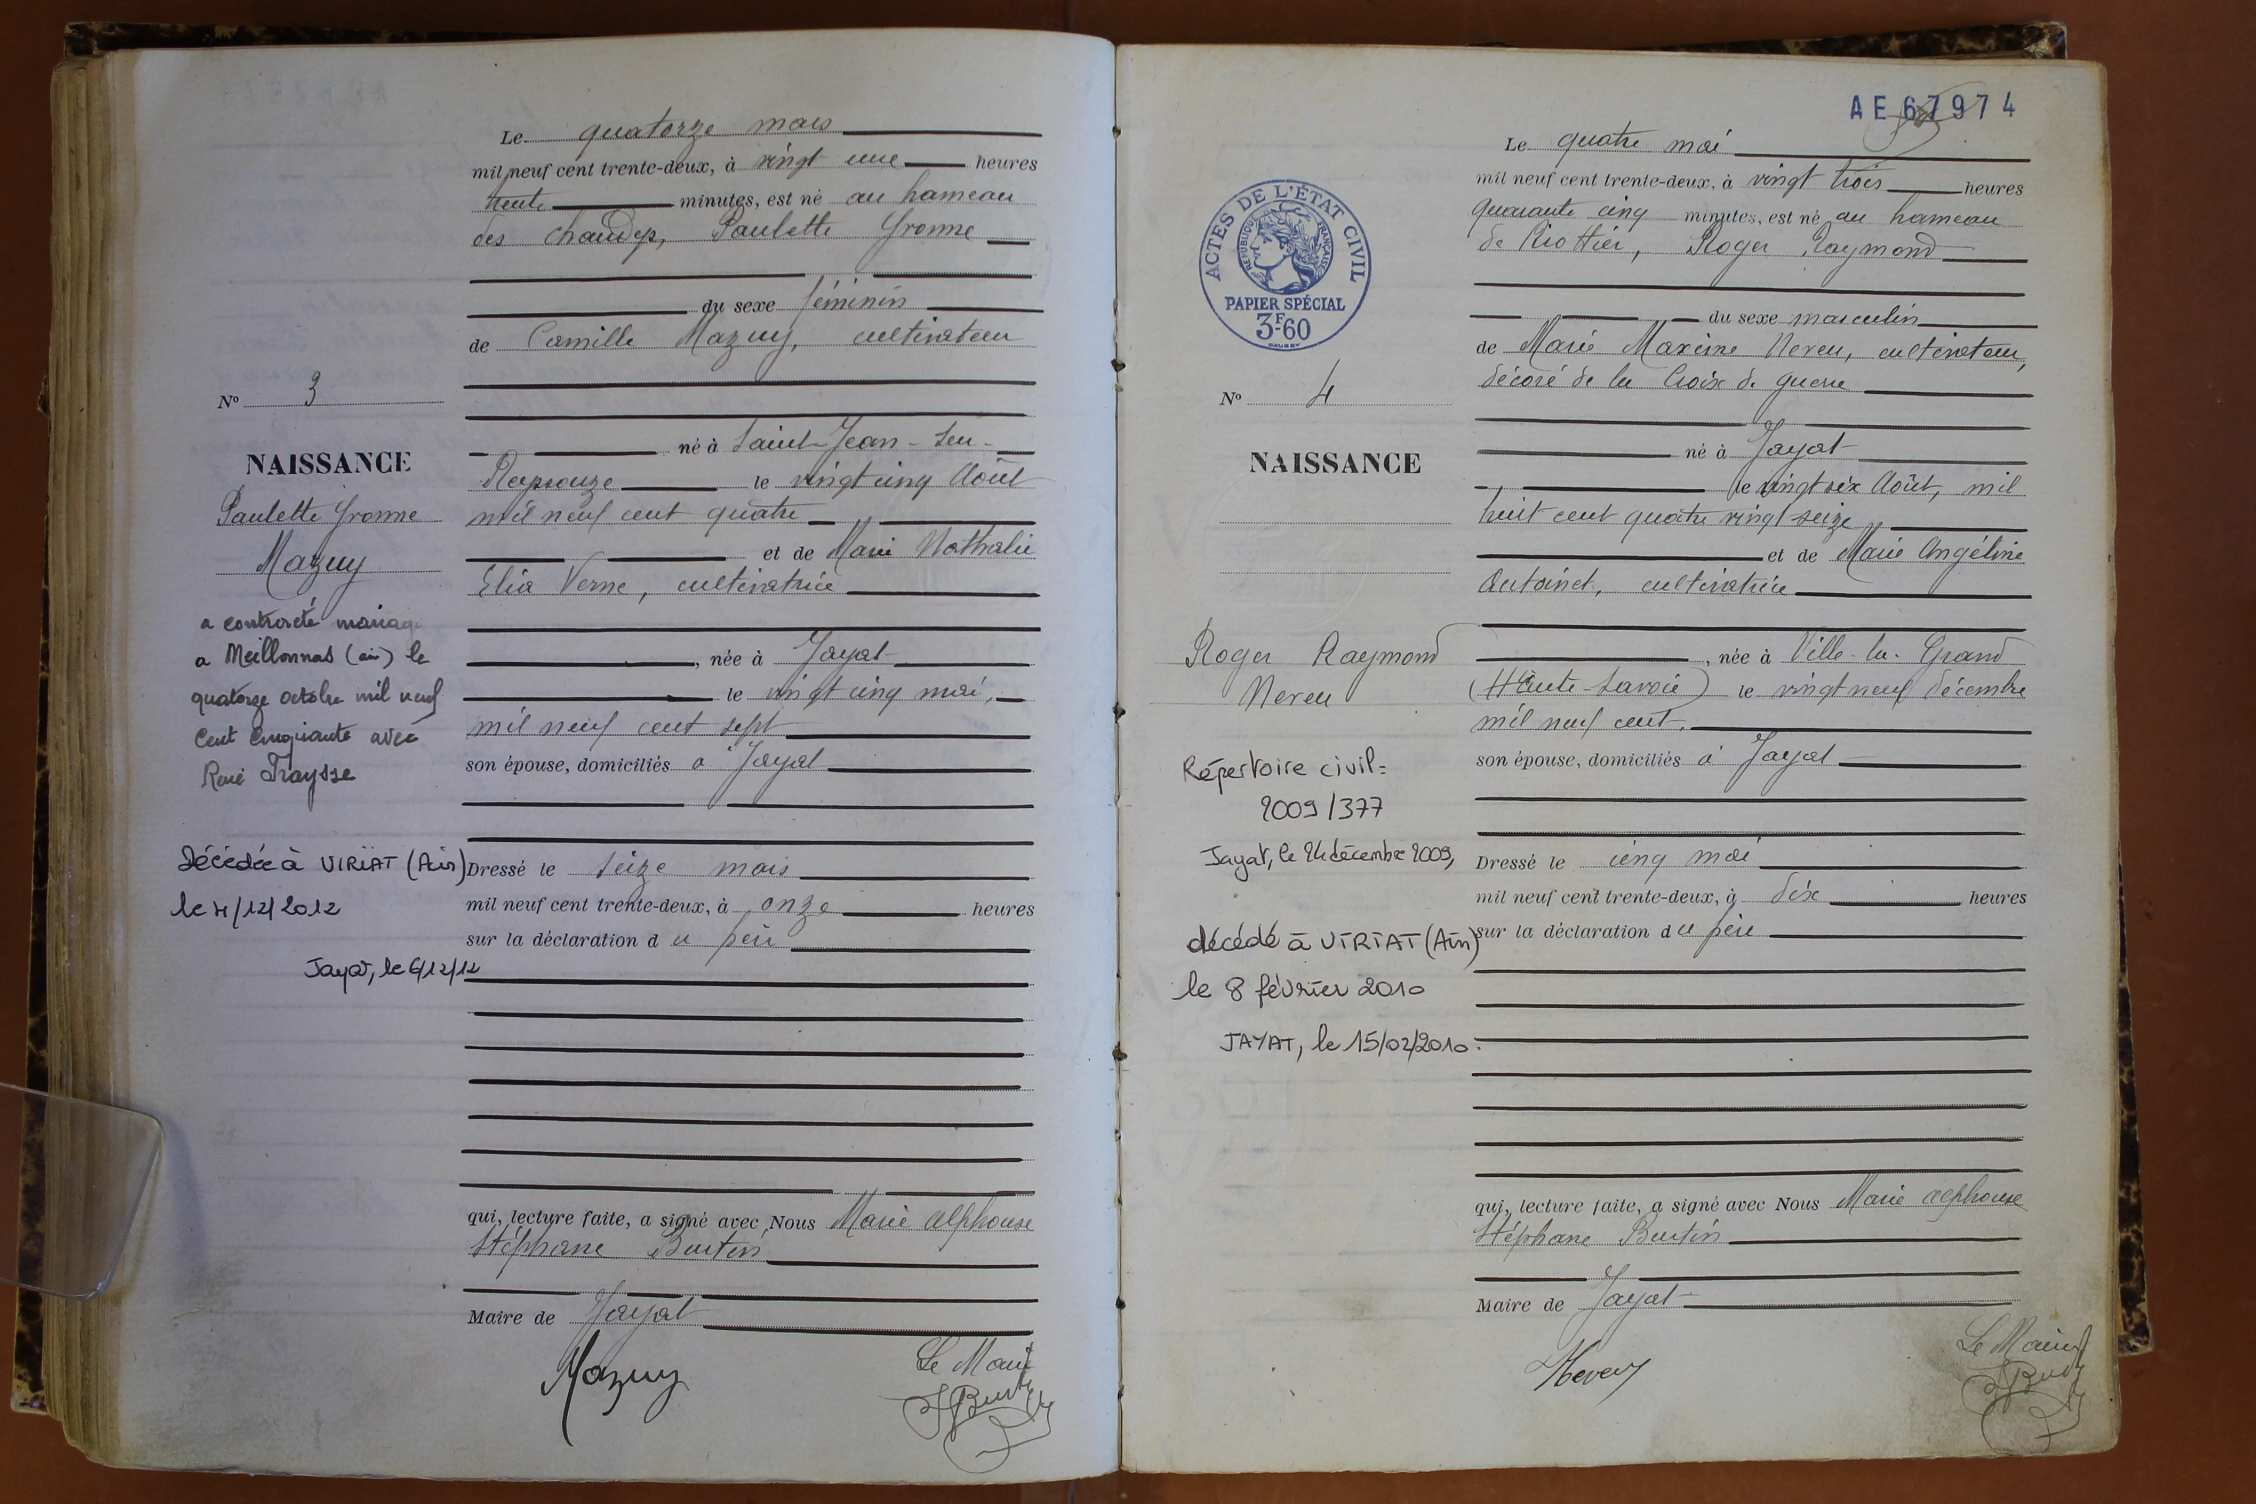 Le quatorze mars
mil neuf cent trente-deux, à vingt une heures
trente minutes, est né au hameau
des Chaudys, Paulette Yvonne
du sexe féminin
de Camille Mazuy, cultivateur
né à Saint-Jean-sur-
Reyssouze le vingt cinq Août
mil neuf cent quatre
et de Marie Nathalie
Elia Verne, cultivatrice
, née à Jayat
le vingt cinq mai,
mil neuf cent sept
son épouse, domiciliés à Jayat
Dressé le seize mars
mil neuf cent trente-deux, à onze heures
sur la déclaration du père
qui, lecture faite, a signé avec Nous Marie Alphonse
Stéphane Burtin
Maire de Jayat
Mazuy
Le Maire
Burtin
No 3
NAISSANCE
Paulette Yvonne
Mazuy
a contracté mariage
a Meillonnas (ain) le
quatorze octobre mil neuf
cent cinquante avec
René Traysse
Décédée à VIRIAT (Ain)
le 4/12/2012
Jayat, le 6/12/12
AE 67974
Le quatre mai
mil neuf cent trente-deux, à vingt trois heures
quarante cinq minutes, est né au hameau
de Riottier, Roger Raymond
du sexe masculin
de Marie Maxime Nereu, cultivateur,
décoré de la Croix de guerre
né à Jayat
le vingt six Août, mil
huit cent quatre vingt seize
et de Marie Angéline
Antoinet, cultivatrice
, née à Ville-la-Grand
(Haute-Savoie) le vingt neuf décembre
mil neuf cent.
son épouse, domiciliés à Jayat
Dressé le cinq mai
mil neuf cent trente-deux, à dix heures
sur la déclaration du père
qui, lecture faite, a signé avec Nous Marie Alphonse
Stéphane Burtin
Maire de Jayat
Le Maire
ACTES DE L'ÉTAT CIVIL
RÉPUBLIQUE FRANÇAISE
PAPIER SPÉCIAL
3F60
No 4
NAISSANCE
Roger Raymond
Nereu
Répertoire civil=
2009/377
Jayat, le 24 décembre 2009,
décédé à VIRIAT (Ain)
le 8 février 2010
JAYAT, le 15/02/2010.